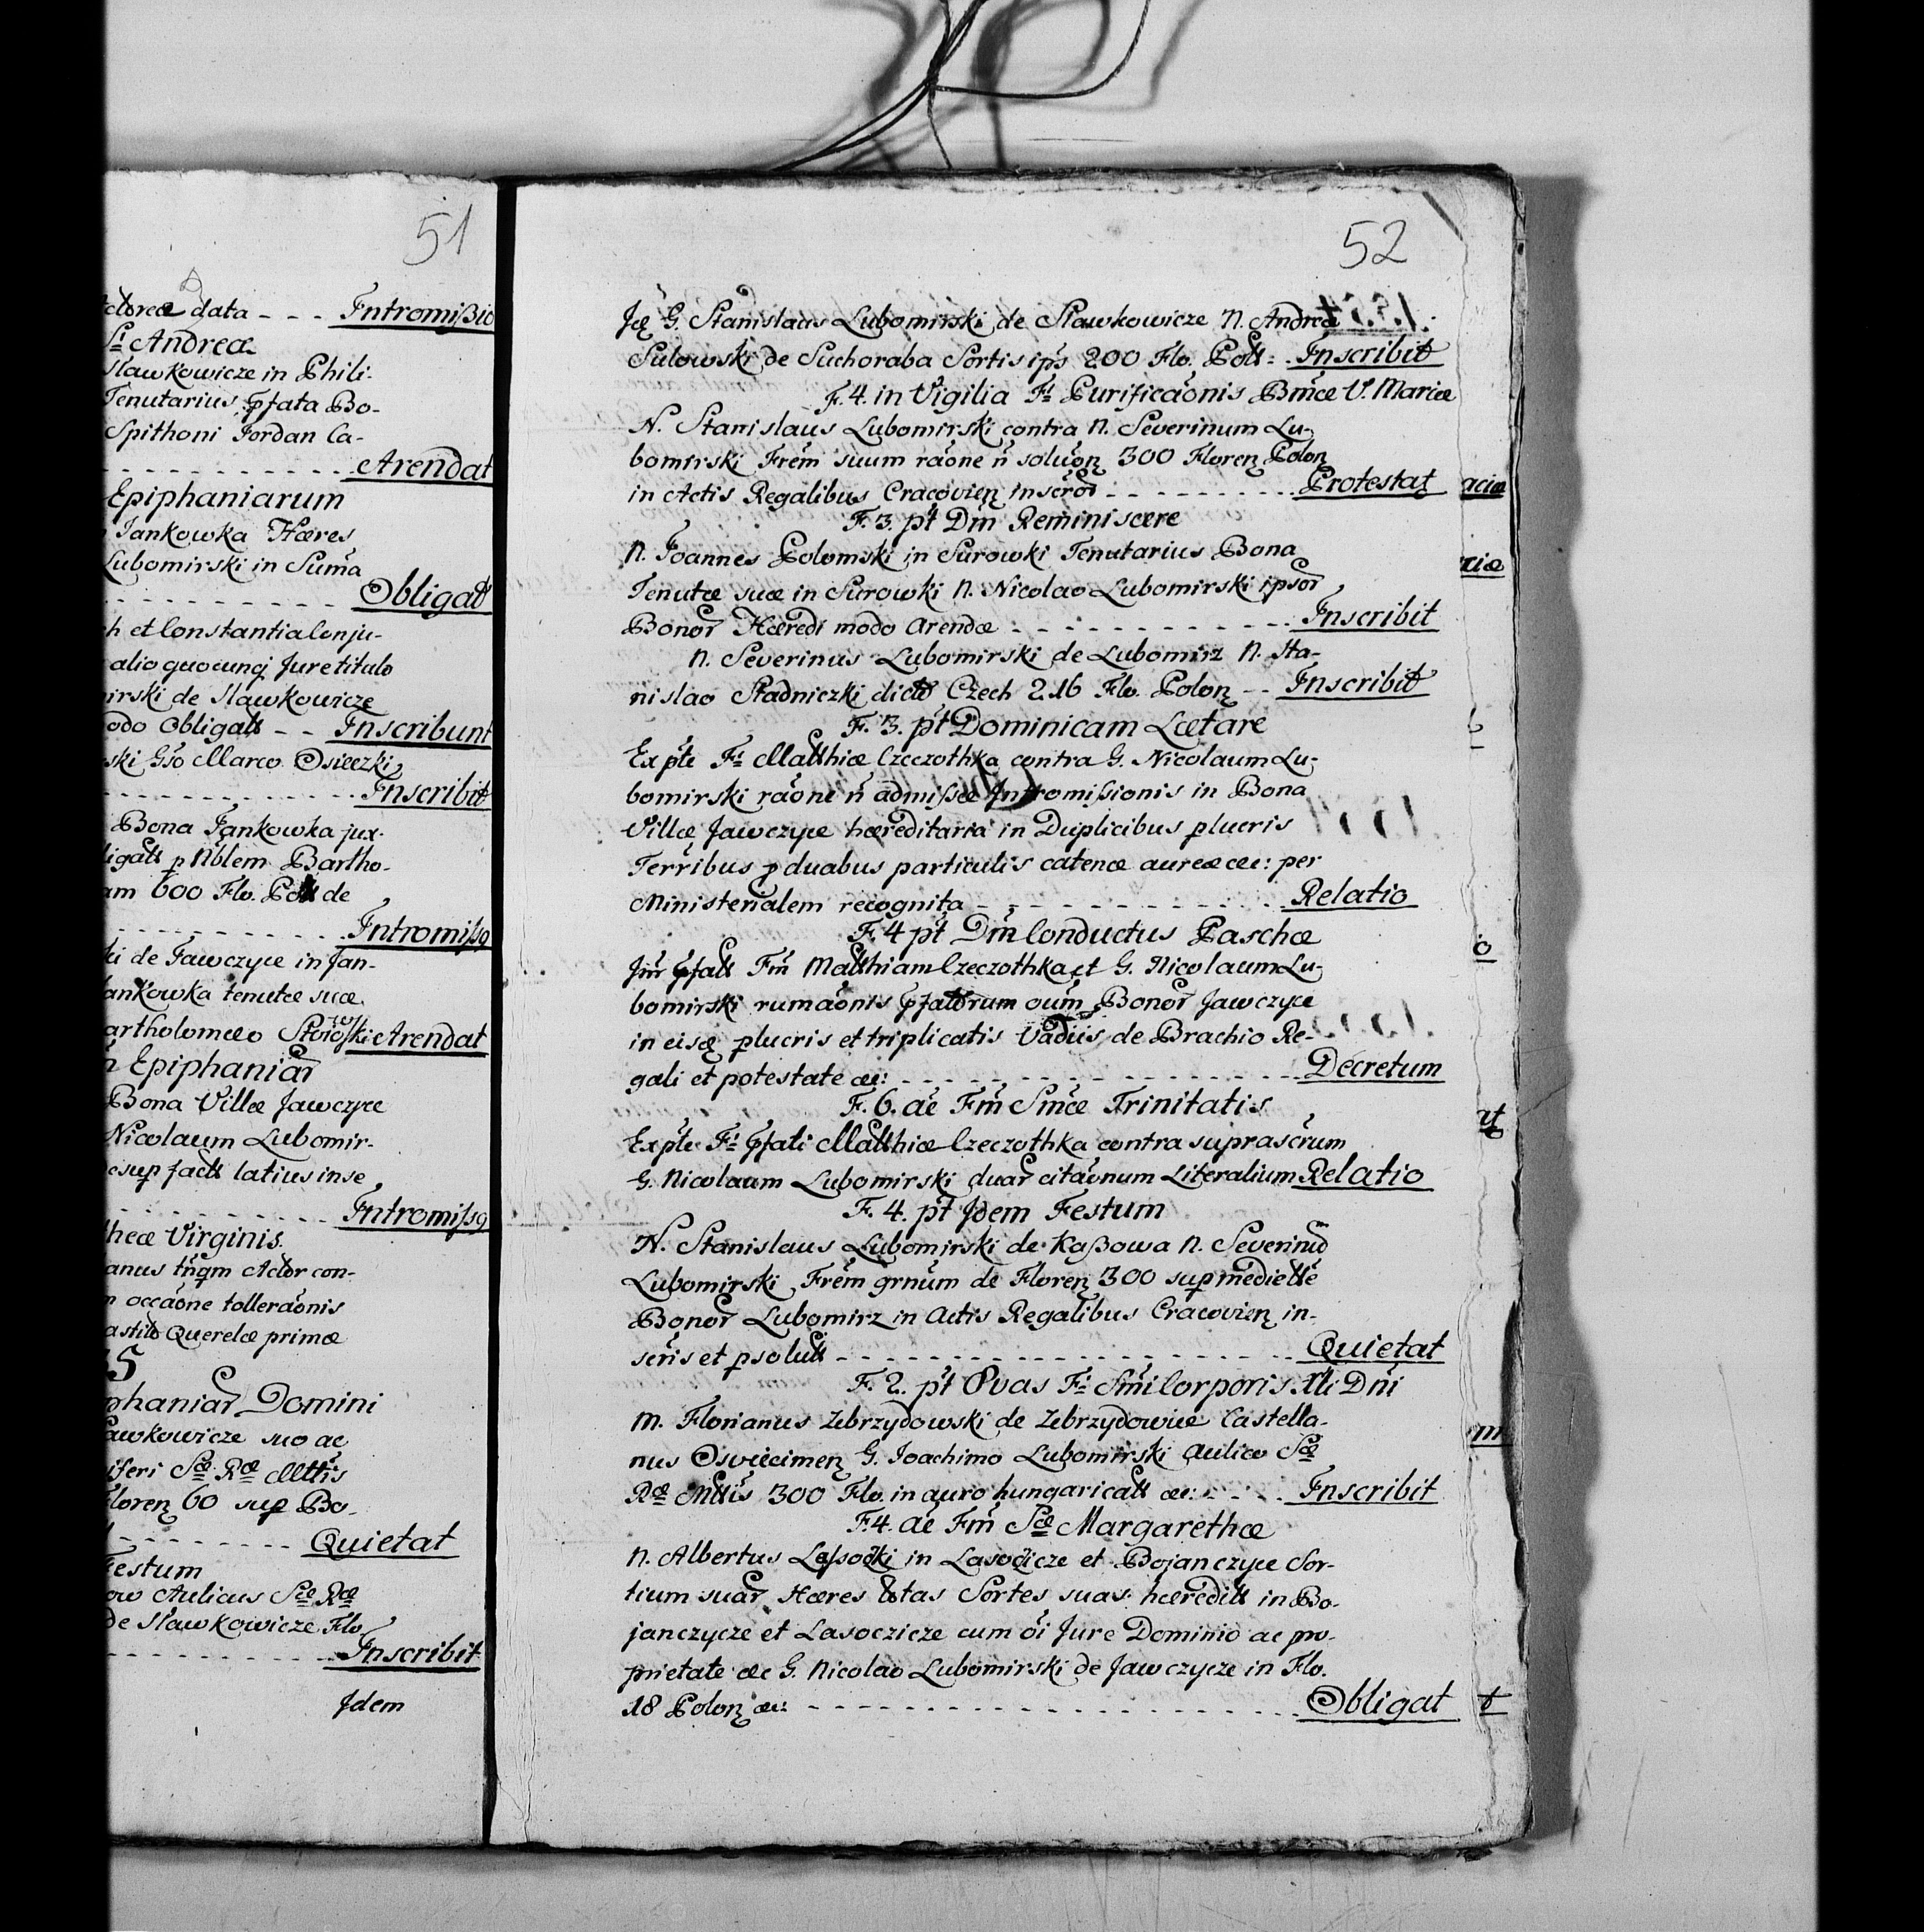 51
data - - - Intromißio
Sti Andreæ
Slawkowicze in Phili-
Tenutarius pfata Bo-
Spithoni Jordan Ca-
- - - Arendat
Epiphaniarum
Jankowka Hæres
Lubomirski in Suma
- - - Obligat
et Constantia Conju-
alio quocunq Jure titulo
mirski de Slawkowicze
Obligatt - - Inscribunt
Marco Osieczki
- - - Inscribit
Bona Jankowka jux-
p Nblem Bartho-
600 Flo. Poll de
- - - Intromißio
de Jawczyce in Jan-
tenutæ suæ
artholomeo Arendat
Epiphaniar
Bona Villæ Jawczyce
Nicolaum Lubomir-
latius inse
- - - Intromißio
Virginis.
Actor con-
occaõne tolleraõnis
Querelæ primæ
Domini
suo ac
Scæ Ræ Mttis
60 sup Bo-
- - - Quietat
Festum
Aulicus Scæ Ræ
de Slawkowicze Flo
- - - Inscribit
Idem
52
Idẽ G. Stanislaus Lubomirski de Slawkowicze N. Andreæ
Sulowski de Suchoraba Sortis ips 200 Flo. Poll - Inscribit
F. 4. in Vigilia Fi Purificaõnis Bmæ V. Mariæ
N. Stanislaus Lubomirski contra N. Severinum Lu-
bomirski Frem suum raõne ñ soluõn 300 Floren Polon
in Actis Regalibus Cracovien inscror - - - Protestat
F. 3. pt Dm Reminiscere
N. Joannes Polomski in Surowki Tenutarius Bona
Tenutæ suæ in Surowki N. Nicolao Lubomirski ipsor
Bonor Hæredi modo Arendæ - - - Inscribit
N. Severinus Lubomirski de Lubomirz N. Sta-
nislao Stadniczki dicto Czech 216 Flo. Polon - - Inscribit
F. 3. pt Dominicam Lætare
Ex pte Fi Matthiæ Czeczothka contra G. Nicolaum Lu-
bomirski raõne ñ admißæ Intromißionis in Bona
Villæ Jawczyce hæreditaria in Duplicibus plucris
Terribus p duabus particulis catenæ aureæ ac: per
Ministerialem recognita - - - Relatio
F. 4 pt Dm Conductus Paschæ
Int pfatt Fm Matthiam Czeczothka et G. Nicolaum Lu-
bomirski rumaõnis pfatorum oum Bonor Jawczyce
in eisq plucris et triplicatis Vadiis de Brachio Re-
gali et potestate ac: - - - Decretum
F. 6. ac Fm Smæ Trinitatis
Ex pte Fi pfati Matthiæ Czeczothka contra suprascrum
G. Nicolaum Lubomirski duar citaõnum Literalium Relatio
F. 4. pt Idem Festum
N. Stanislaus Lubomirski de Kaßowa N. Severinũ
Lubomirski Frem grnum de Floren 300 sup mediette
Bonor Lubomirz in Actis Regalibus Cracovien in-
scris et psolutt - - - Quietat
F. 2. pt Ovas Fi Smi Corporis Xti Dni
M. Florianus Zebrzydowski de Zebrzydowice Castella-
nus Osviecimen G. Joachimo Lubomirski Aulico Scæ
Ræ Mttis 300 Flo. in auro hungaricatt ac: - - - Inscribit
F. 4. ac Fm Scæ Margarethæ
N. Albertus Laßocki in Lasocicze et Bojanczyce Sor-
tium suar Hæres totas Sortes suas hæreditt in Bo-
janczycze et Lasoczicze cum oi Jure Dominio ac pro-
prietate ac G. Nicolao Lubomirski de Jawczycze in Flo.
18 Polon ac: - - - Obligat